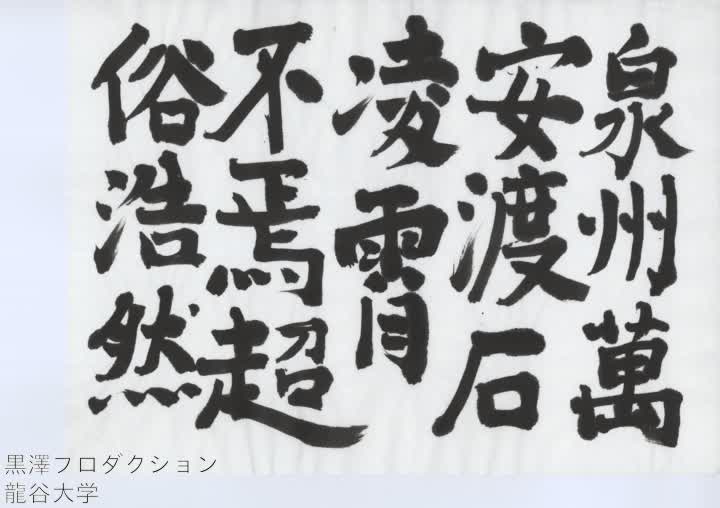 泉州萬
安渡石
凌霄
不焉超
俗浩然
黒澤フロダクション
龍谷大学